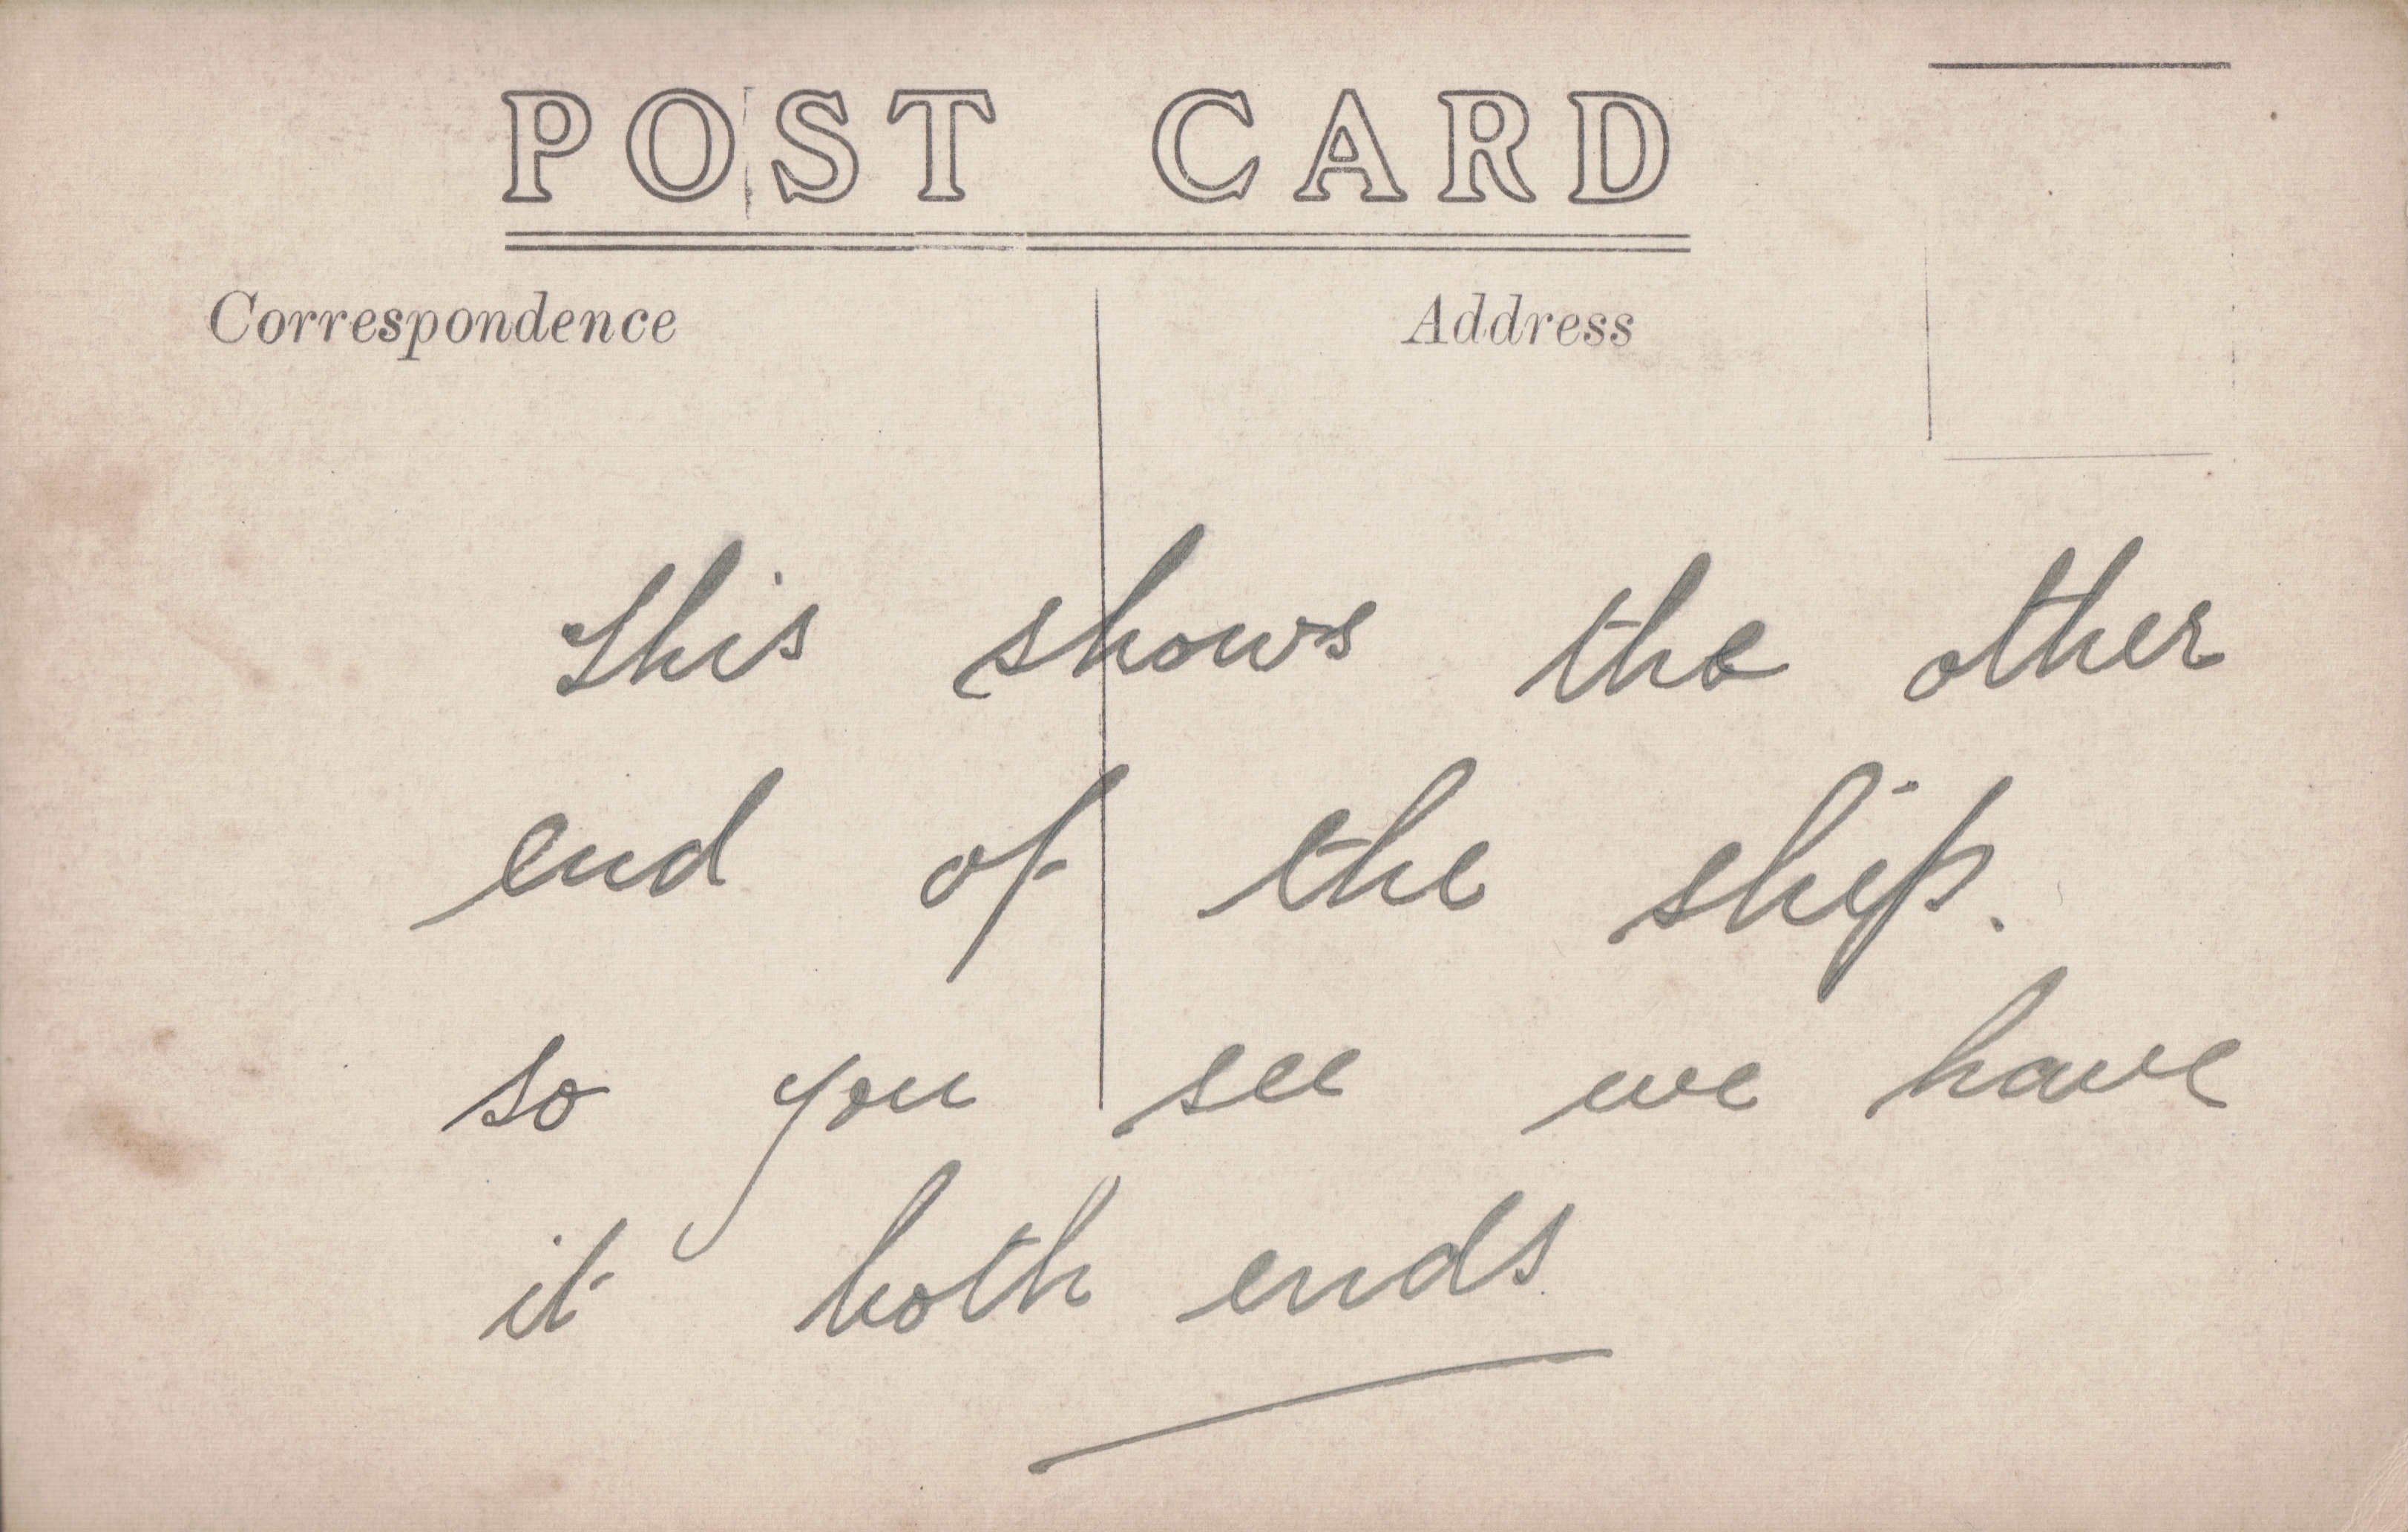 POST CARD
Correspondence
Address
This shows the other
end of the ship.
so you see we have
it both ends